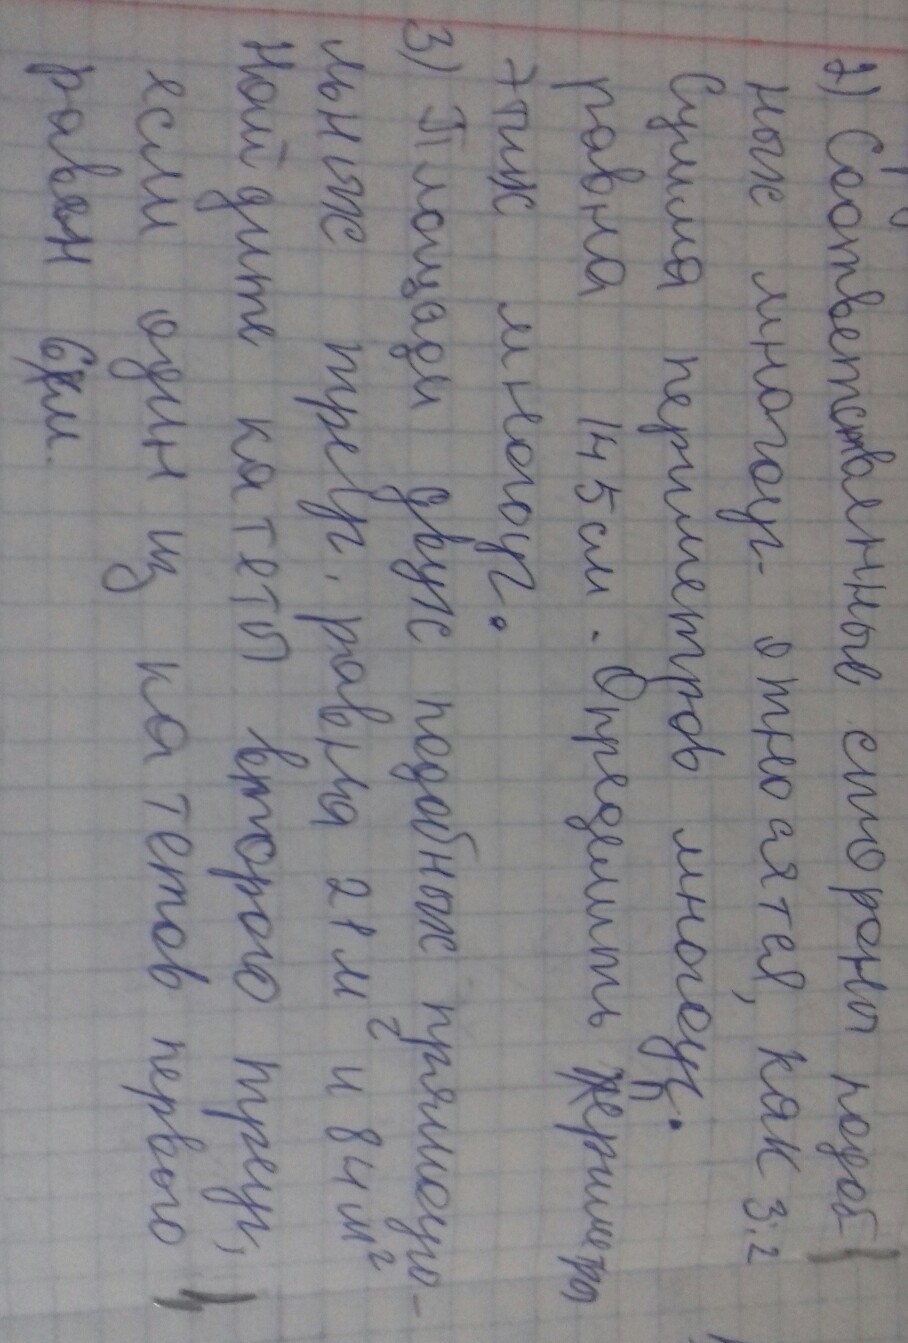 2) Соответственные стороны подоб
ных многоуг. относятся, как 3:2
Сумма периметров многоуг.
равна 145см. Определить периметры
этих многоуг.
3) Площади двух подобных прямоуго-
льных треуг. равны 21м² и 84м²
Найдите катеты второго треуг,
если один из катетов первого
равен 6м.